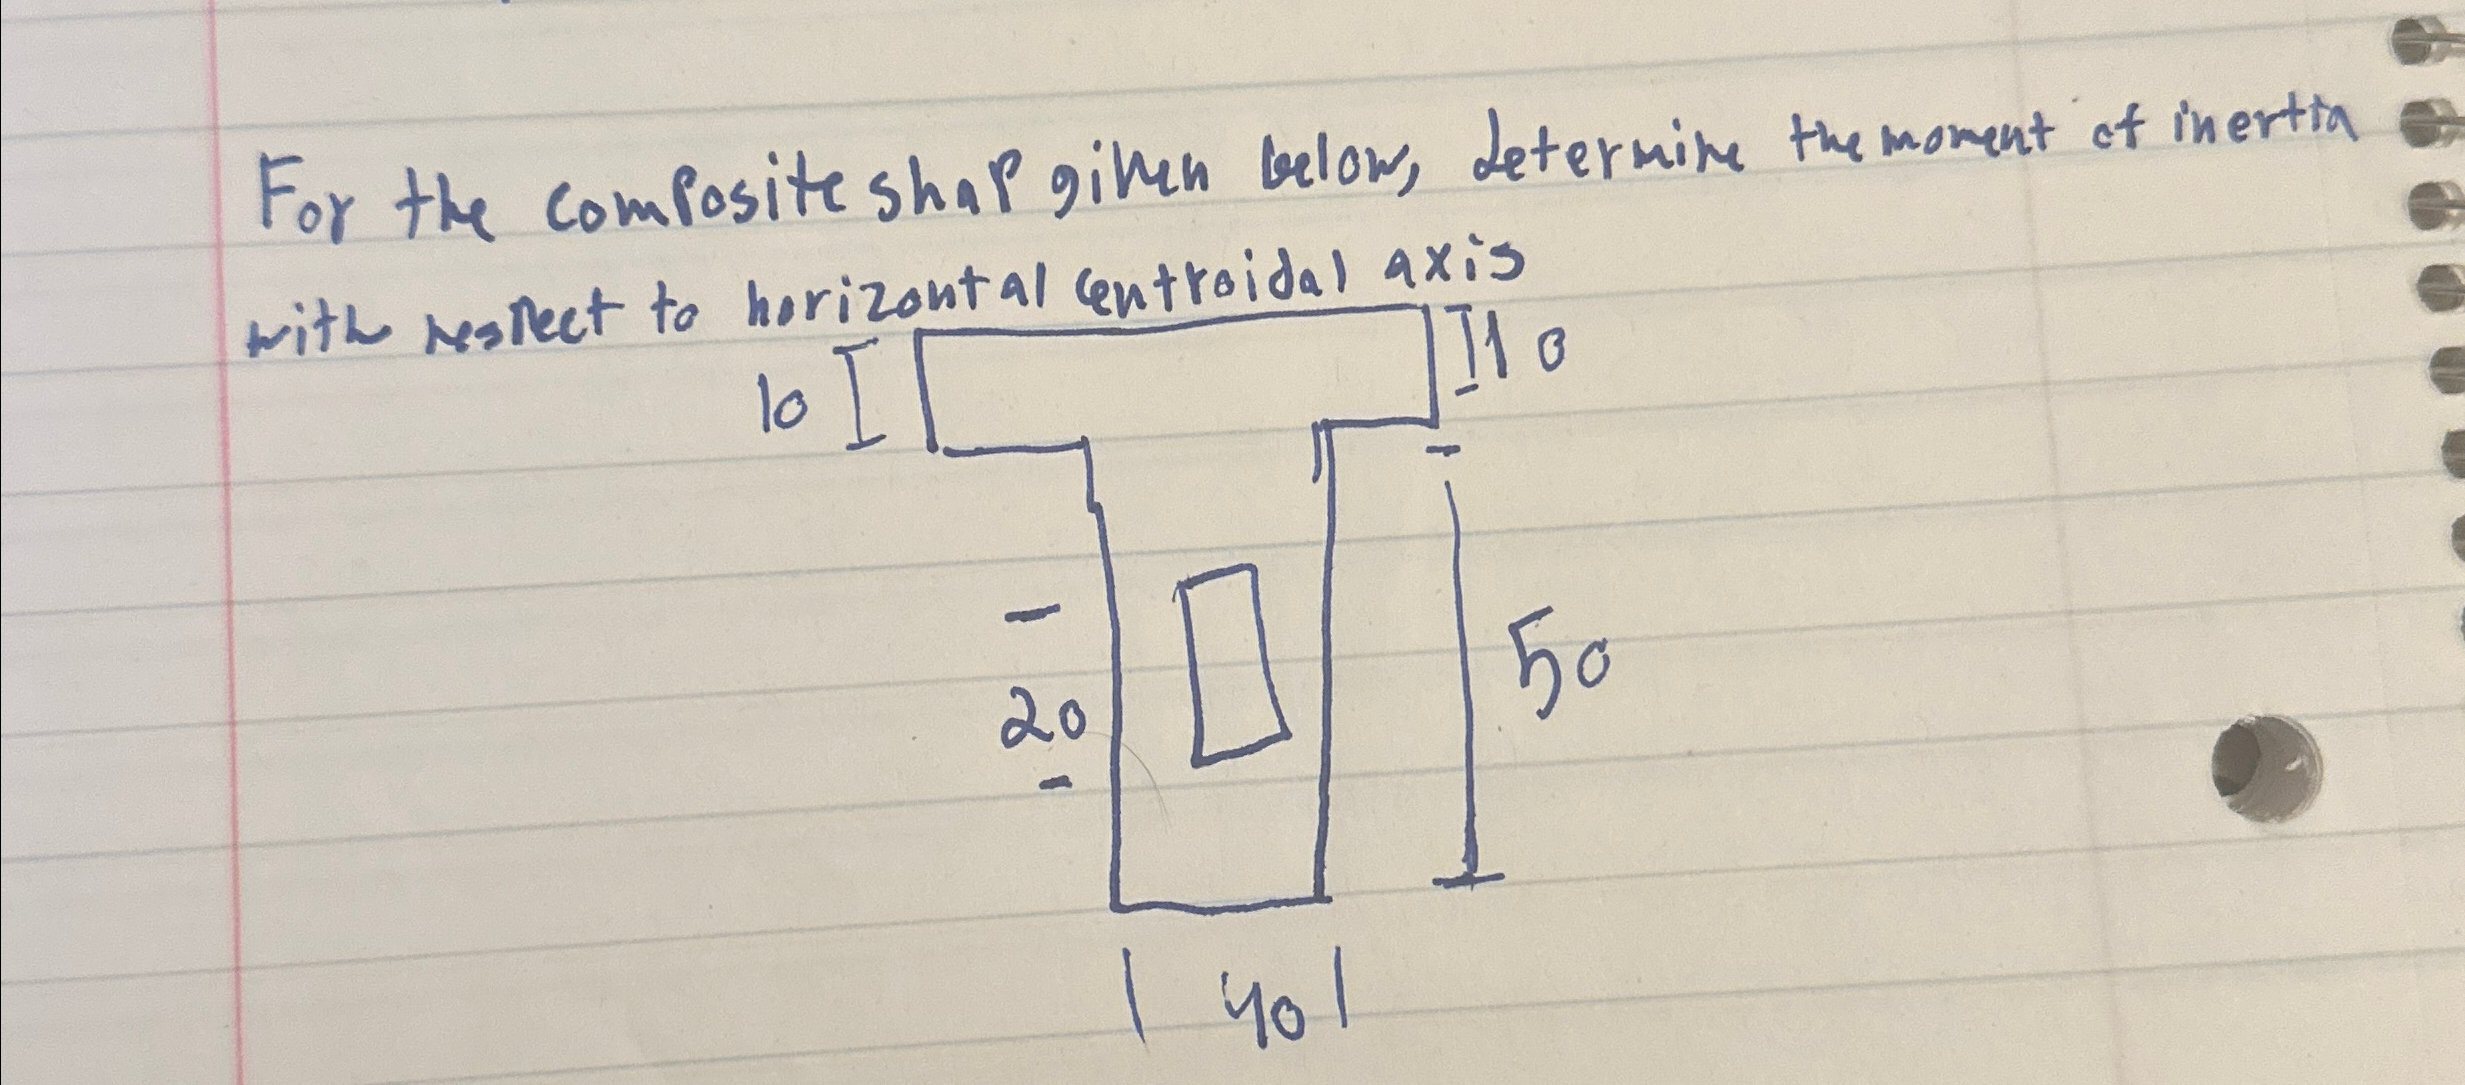 For the composite shap given below, determine the moment of inertia
with respect to horizontal centroidal axis
10
10
20
50
40